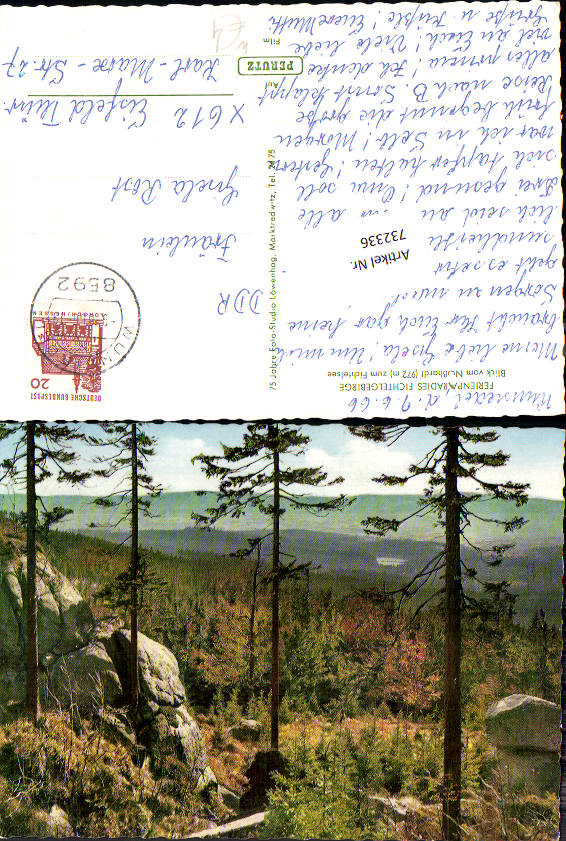 FERIENPARADIES FICHTELGEBIRGE
Blick vom Nußhardt (972 m) zum Fichtelsee
Wunsiedel d. 9.6.66
Meine liebe Gisela! Um mich
braucht Ihr Euch gar keine
Sorgen zu machen!
geht es sehr
seid
lich
Drei gesund! Omi soll
sich tapfer halten! Gestern
war ich in Selb! Morgen
früh beginnt die große
Reise nach B. Sonst klappt
alles prima! Ich denke
viel an Euch! Viele liebe
Grüße u. Küsse! Euere Mutti
Artikel Nr.
732336
75 Jahre Foto-Studio Löwenhag, Marktredwitz, Tel. 2475
Auf
PERUTZ
Film
DEUTSCHE BUNDESPOST
20
8592
DDR
Fräulein
Gisela Rost
X 612 Eisfeld Thür.
Karl-Marx-Str. 27